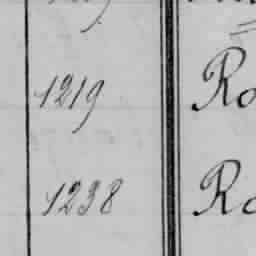 1219 Ro
1238 Ro